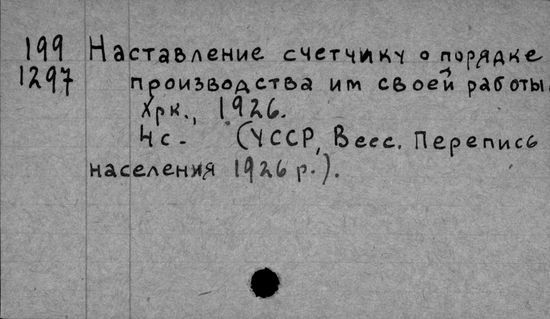 199 Наставление счетчику о порядке
1297 производства им своей работы.
Хрк., 1926.
4с. (УССР, Веес. Перепись
населения 1926 р.).